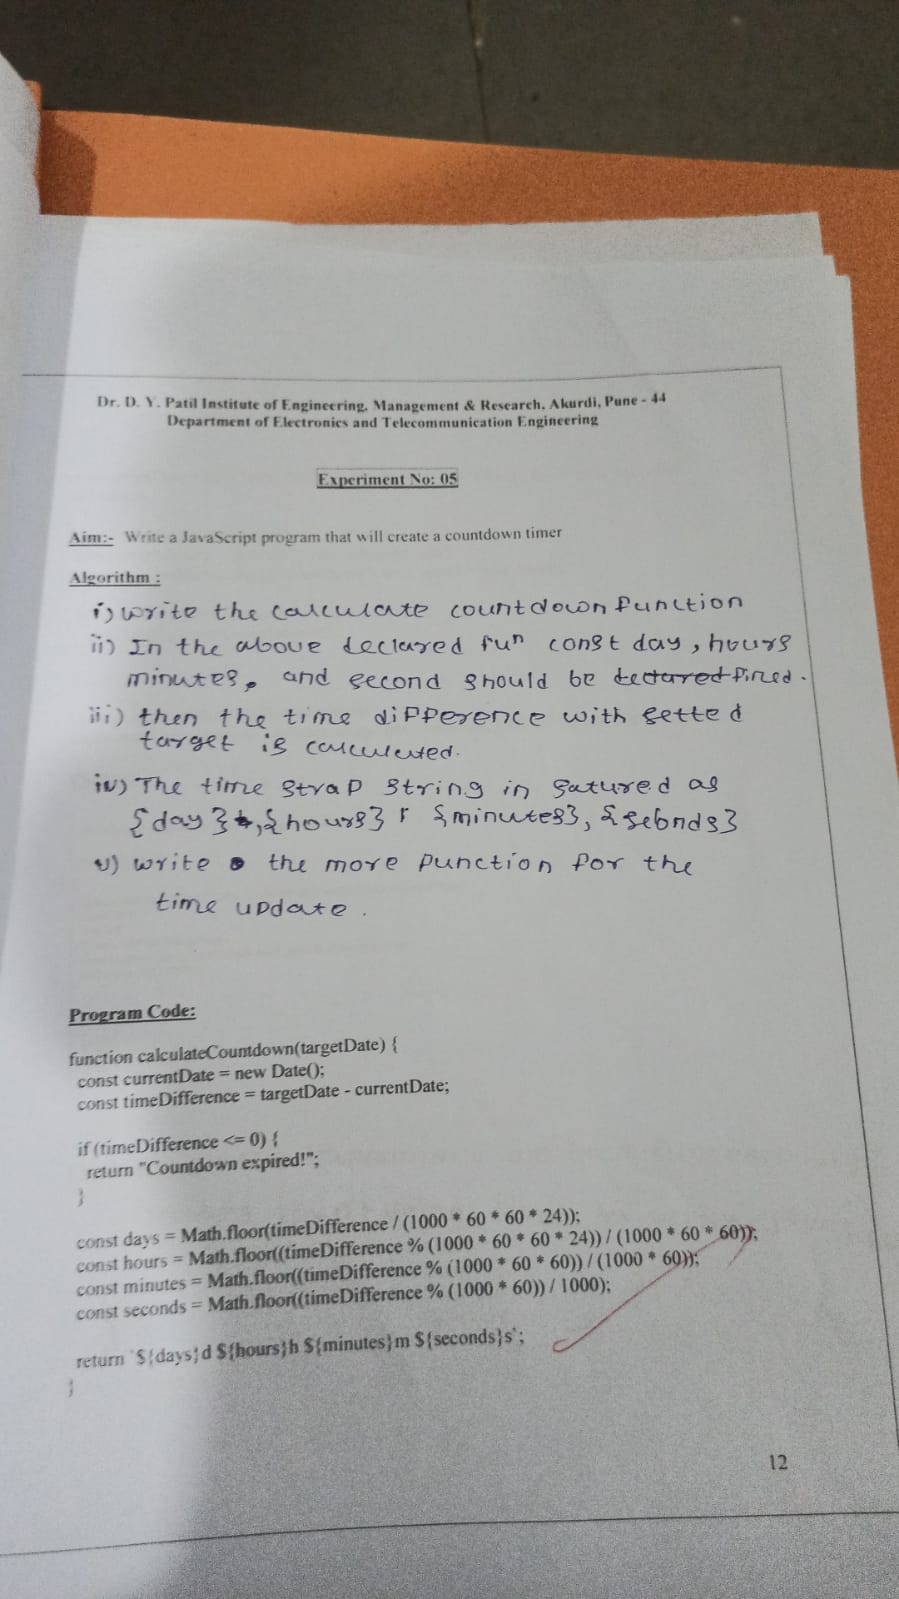 Dr. D. Y. Patil Institute of Engineering, Management & Research, Akurdi, Pune - 44
Department of Electronics and Telecommunication Engineering
Experiment No: 05
Aim:- Write a JavaScript program that will create a countdown timer
Algorithm :
i) write the calculate countdown function
ii) In the above declared fun const day, hours
minutes, and second should be declared fined.
iii) then the time difference with setted
target is calculated.
iv) The time strap string in as
{day}, {hours} {minutes}, {seconds}
v) write the more function for the
time update.
Program Code:
function calculateCountdown(targetDate) {
const currentDate = new Date();
const timeDifference = targetDate - currentDate;
if (timeDifference <= 0) {
return "Countdown expired!";
}
const days = Math.floor(timeDifference / (1000 * 60 * 60 * 24));
const hours = Math.floor((timeDifference % (1000 * 60 * 60 * 24)) / (1000 * 60 * 60));
const minutes = Math.floor((timeDifference % (1000 * 60 * 60)) / (1000 * 60));
const seconds = Math.floor((timeDifference % (1000 * 60)) / 1000);
return `${days}d ${hours}h ${minutes}m ${seconds}s`;
}
12